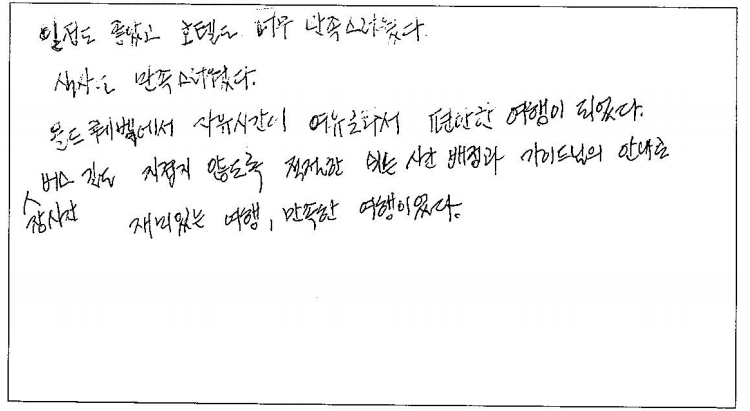 일정도 좋았고 호텔도 너무 만족스러웠다.
식사도 만족스러웠다.
올드퀘벡에서 자유시간이 여유로와서 편안한 여행이 되었다.
버스 길도 지겹지 않도록 적절한 쉬는 시간 배정과 가이드님의 안내로
장시간 재미있는 여행, 만족한 여행이었다.